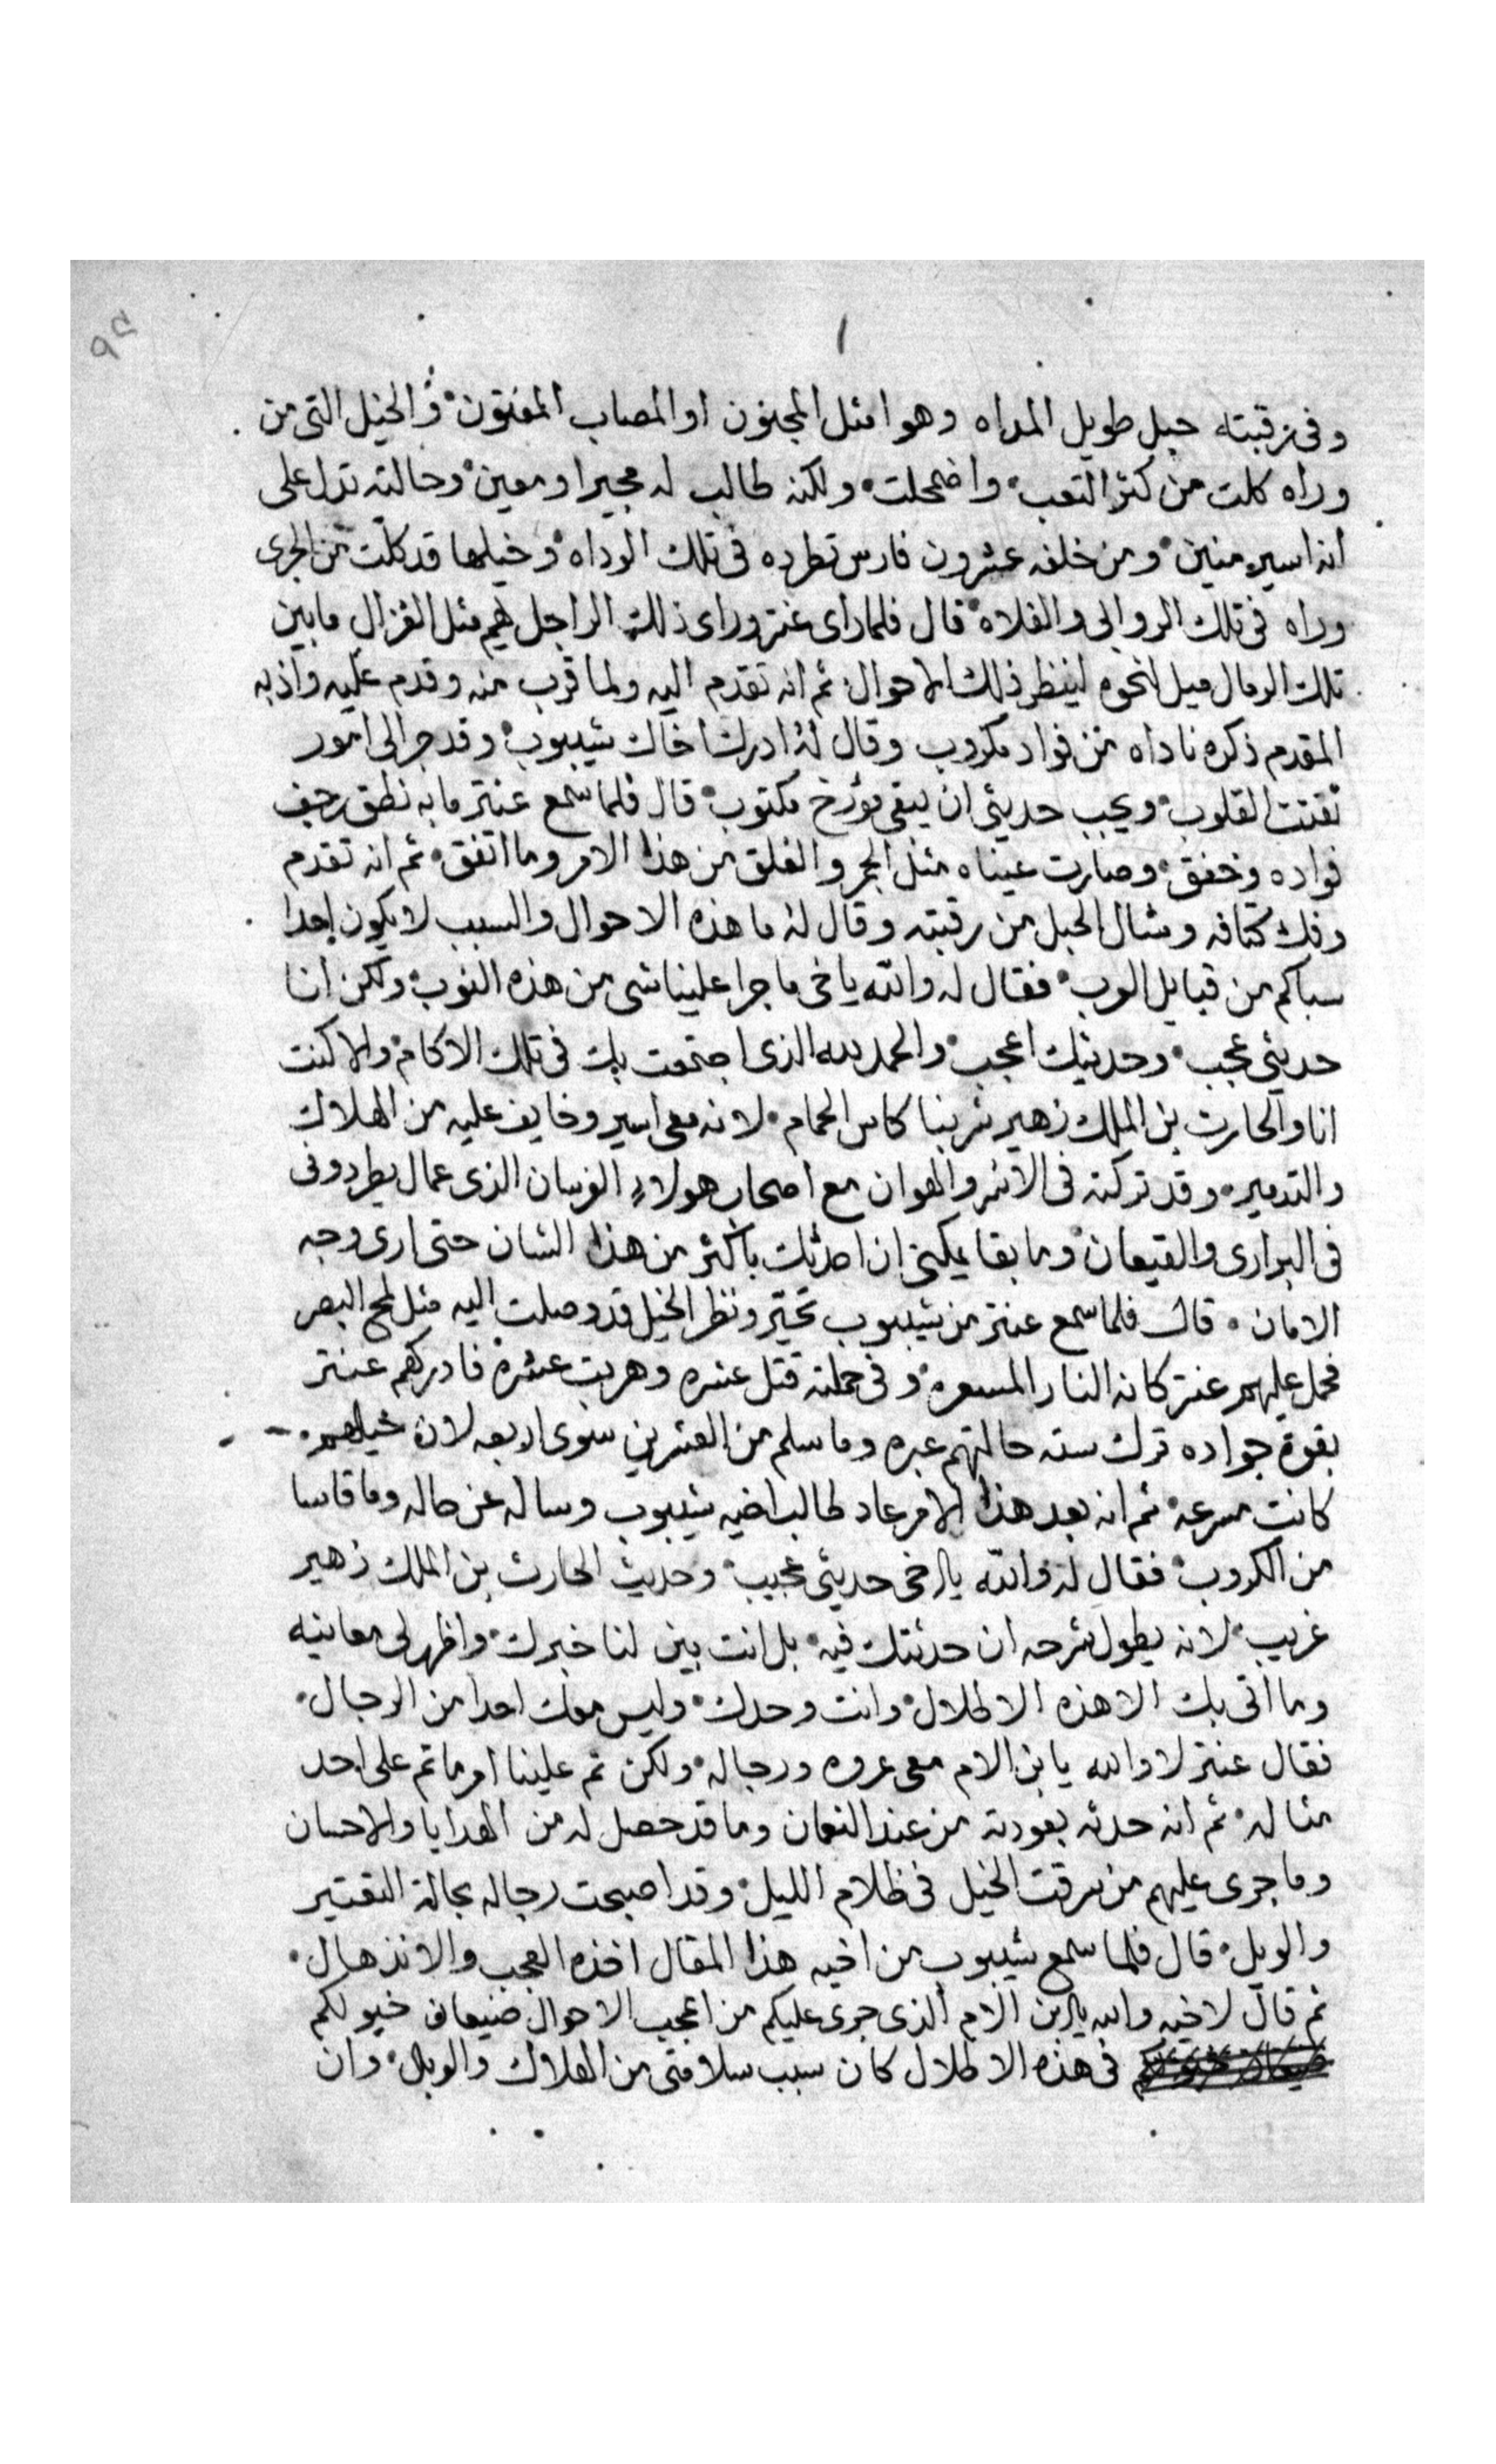 ٩٥
١
وفى رقبته حبل طويل المداه وهوا مثل المجنون او المصاب المفتون والخيل التى من
وراه كلت من كثر التعب واضمحلت ولكنه طالب له مجيرا ومعين وحالته تدل على
انه اسير منين ومن خلفه عشرون فارس تطرده فى تلك الوداه وخيلها قد كلت من الجرى
وراه فى تلك الروابى والفلاه قال فلما راى عنتر وراى ذلك الراجل يهم مثل الغزال ما بين
تلك الرمال ميل لنحوه لينظر ذلك الاحوال ثم انه تقدم اليه ولما قرب منه وقدم عليه واذ به
المقدم ذكره ناداه من فواد مكروب وقال له ادرك اخاك شيبوب وقد جرالى امور
تفتت القلوب ويجب حديثى ان يبقى مؤرخ مكتوب قال فلما سمع عنتر ما به نطق رجف
فواده وخفق وصارت عيناه مثل الجمر والفلق من هذا الامر وما اتفق ثم انه تقدم
وفك كتافه وشال الحبل من رقبته وقال له ما هذه الاحوال والسبب لا يكون احدا
سباكم من قبايل العرب فقال له والله ياخى ما جرا علينا شى من هذه النوب ولكن انا
حديثى عجب وحديثك اعجب والحمد لله الذى اجتمعت بك فى تلك الاكام والا كنت
انا والحارث بن الملك زهير شربنا كاس الحمام لانه معى اسير وخايف عليه من الهلاك
والتدمير وقد تركته فى الاسر والهوان مع اصحاب هولاء الفرسان الذى عمال يطردونى
فى البرارى والقيعان وما بقا يمكنى ان احدثك باكثر من هذا الشان حتى ارى وجه
الامان قال فلما سمع عنتر من شيبوب تحير ونظر الخيل قد وصلت اليه مثل لمح البصر
فحمل عليهم عنتر كانه النار المسعره وفى حملته قتل عشره وهربت عشرة فادركهم عنتر
بقوة جواده ترك سته حالتهم عبره وما سلم من العشرين سوى اربعه لان خيلهم
كانت مسرعه ثم انه بعد هذا الامر عاد طالب اخيه شيبوب وساله عن حاله وما قاسا
من الكروب فقال له والله يا اخى حديثى عجيب وحديث الحارث بن الملك زهير
غريب لانه يطول شرحه ان حدثتك فيه بل انت بين لنا خبرك واظهر لى معانيه
وما اتى بك الا هذه الاطلال وانت وحدك وليس معك احدا من الرجال
فقال عنتر لا والله يا بن الام معى عروه ورجاله ولكن تم علينا امر ما تم على احد
مثاله ثم انه حدثه بعودته من عند النعمان وما قد حصل له من الهدايا والاحسان
وما جرى عليهم من سرقت الخيل فى ظلام الليل وقد اصبحت رجاله بحالة التعتير
والويل قال فلما سمع شيبوب من اخيه هذا المقال اخذه العجب والانذهال
ثم قال لاخيه والله يا ابن الام الذى جرى عليكم من اعجب الاحوال ضيعان خيولكم
فى هذه الاطلال كان سبب سلامتى من الهلاك والوبال وان